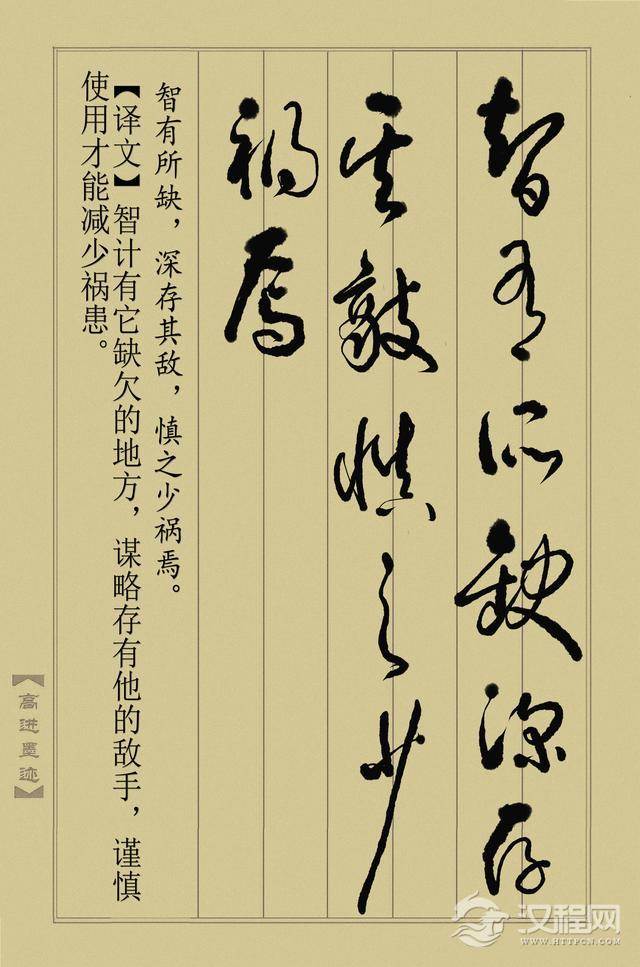 智有所缺深存
其敌慎之少
祸焉
智有所缺，深存其敌，慎之少祸焉。
【译文】智计有它缺欠的地方，谋略存有他的敌手，谨慎
使用才能减少祸患。
【高进墨迹】
汉程网
WWW.HTTPCN.COM